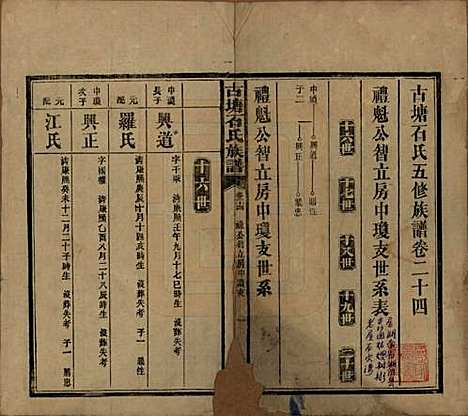 古塘石氏五修族譜卷二十四
禮魁公智立房中瓊支世系表
十六世 十七世 十八世 十九世 二十世
中瓊 興道 顯性
子二 興正 顯忠
禮魁公智立房中瓊支世系
古塘石氏族譜
十六世
中瓊長子 興道
字于乘
清康熙壬午九月十七巳時生
元配 羅氏
清康熙庚辰十月十四亥時生 歿葬失考 子一 顯性
中瓊次子 興正
清康熙乙酉八月二十八辰時生
元配 江氏
清康熙癸未十二月二十子時生 歿葬失考 子一 顯忠